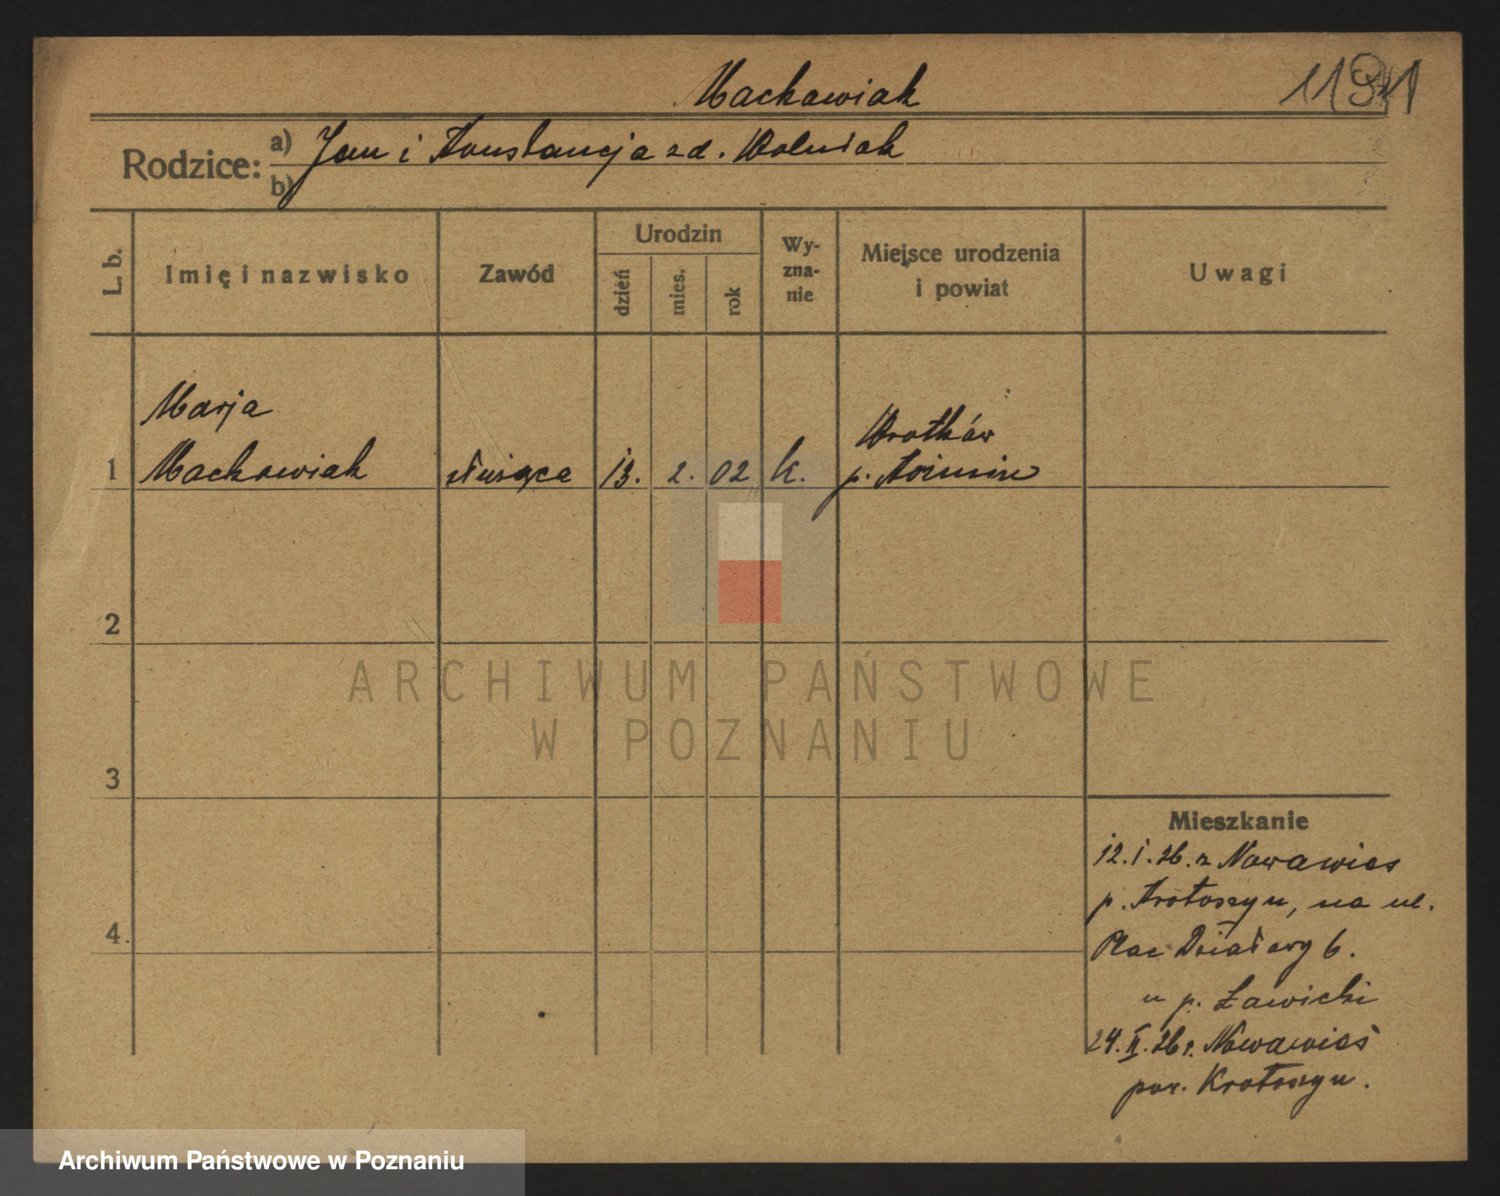 Mackowiak
1191
Rodzice: a) Jan i Konstancja zd. Wolniak
b)
L. b.
Imię i nazwisko
Zawód
Urodzin
dzień
mies.
rok
Wy-
zna-
nie
Miejsce urodzenia
i powiat
Uwagi
Marja
Wrotków
1 Mackowiak służąca 13. 2. 02 k. p. Koźmin
2
3
4
Mieszkanie
12.I.26. z Nowawieś
p. Krotoszyn, na ul.
Plac Działowy 6.
u p. Ławicki
24.II.26 r. Nowawieś
pow. Krotoszyn.
ARCHIWUM PAŃSTWOWE
W POZNANIU
Archiwum Państwowe w Poznaniu